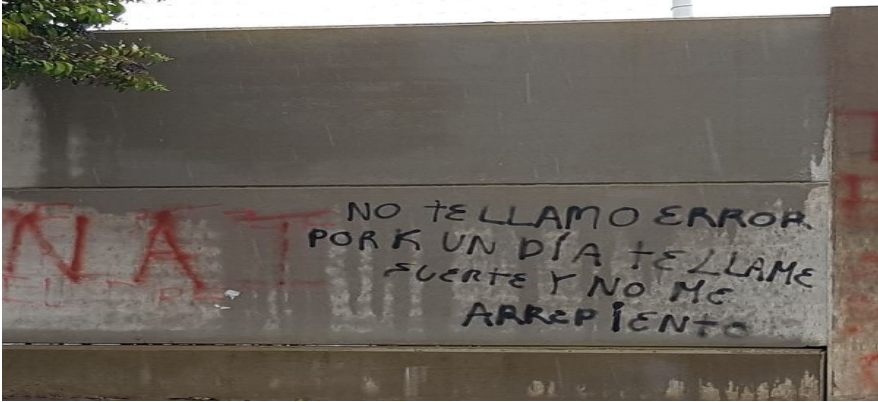 NO TE LLAMO ERROR
POR K UN DÍA TE LLAME
SUERTE Y NO ME
ARREPIENTO
NAT